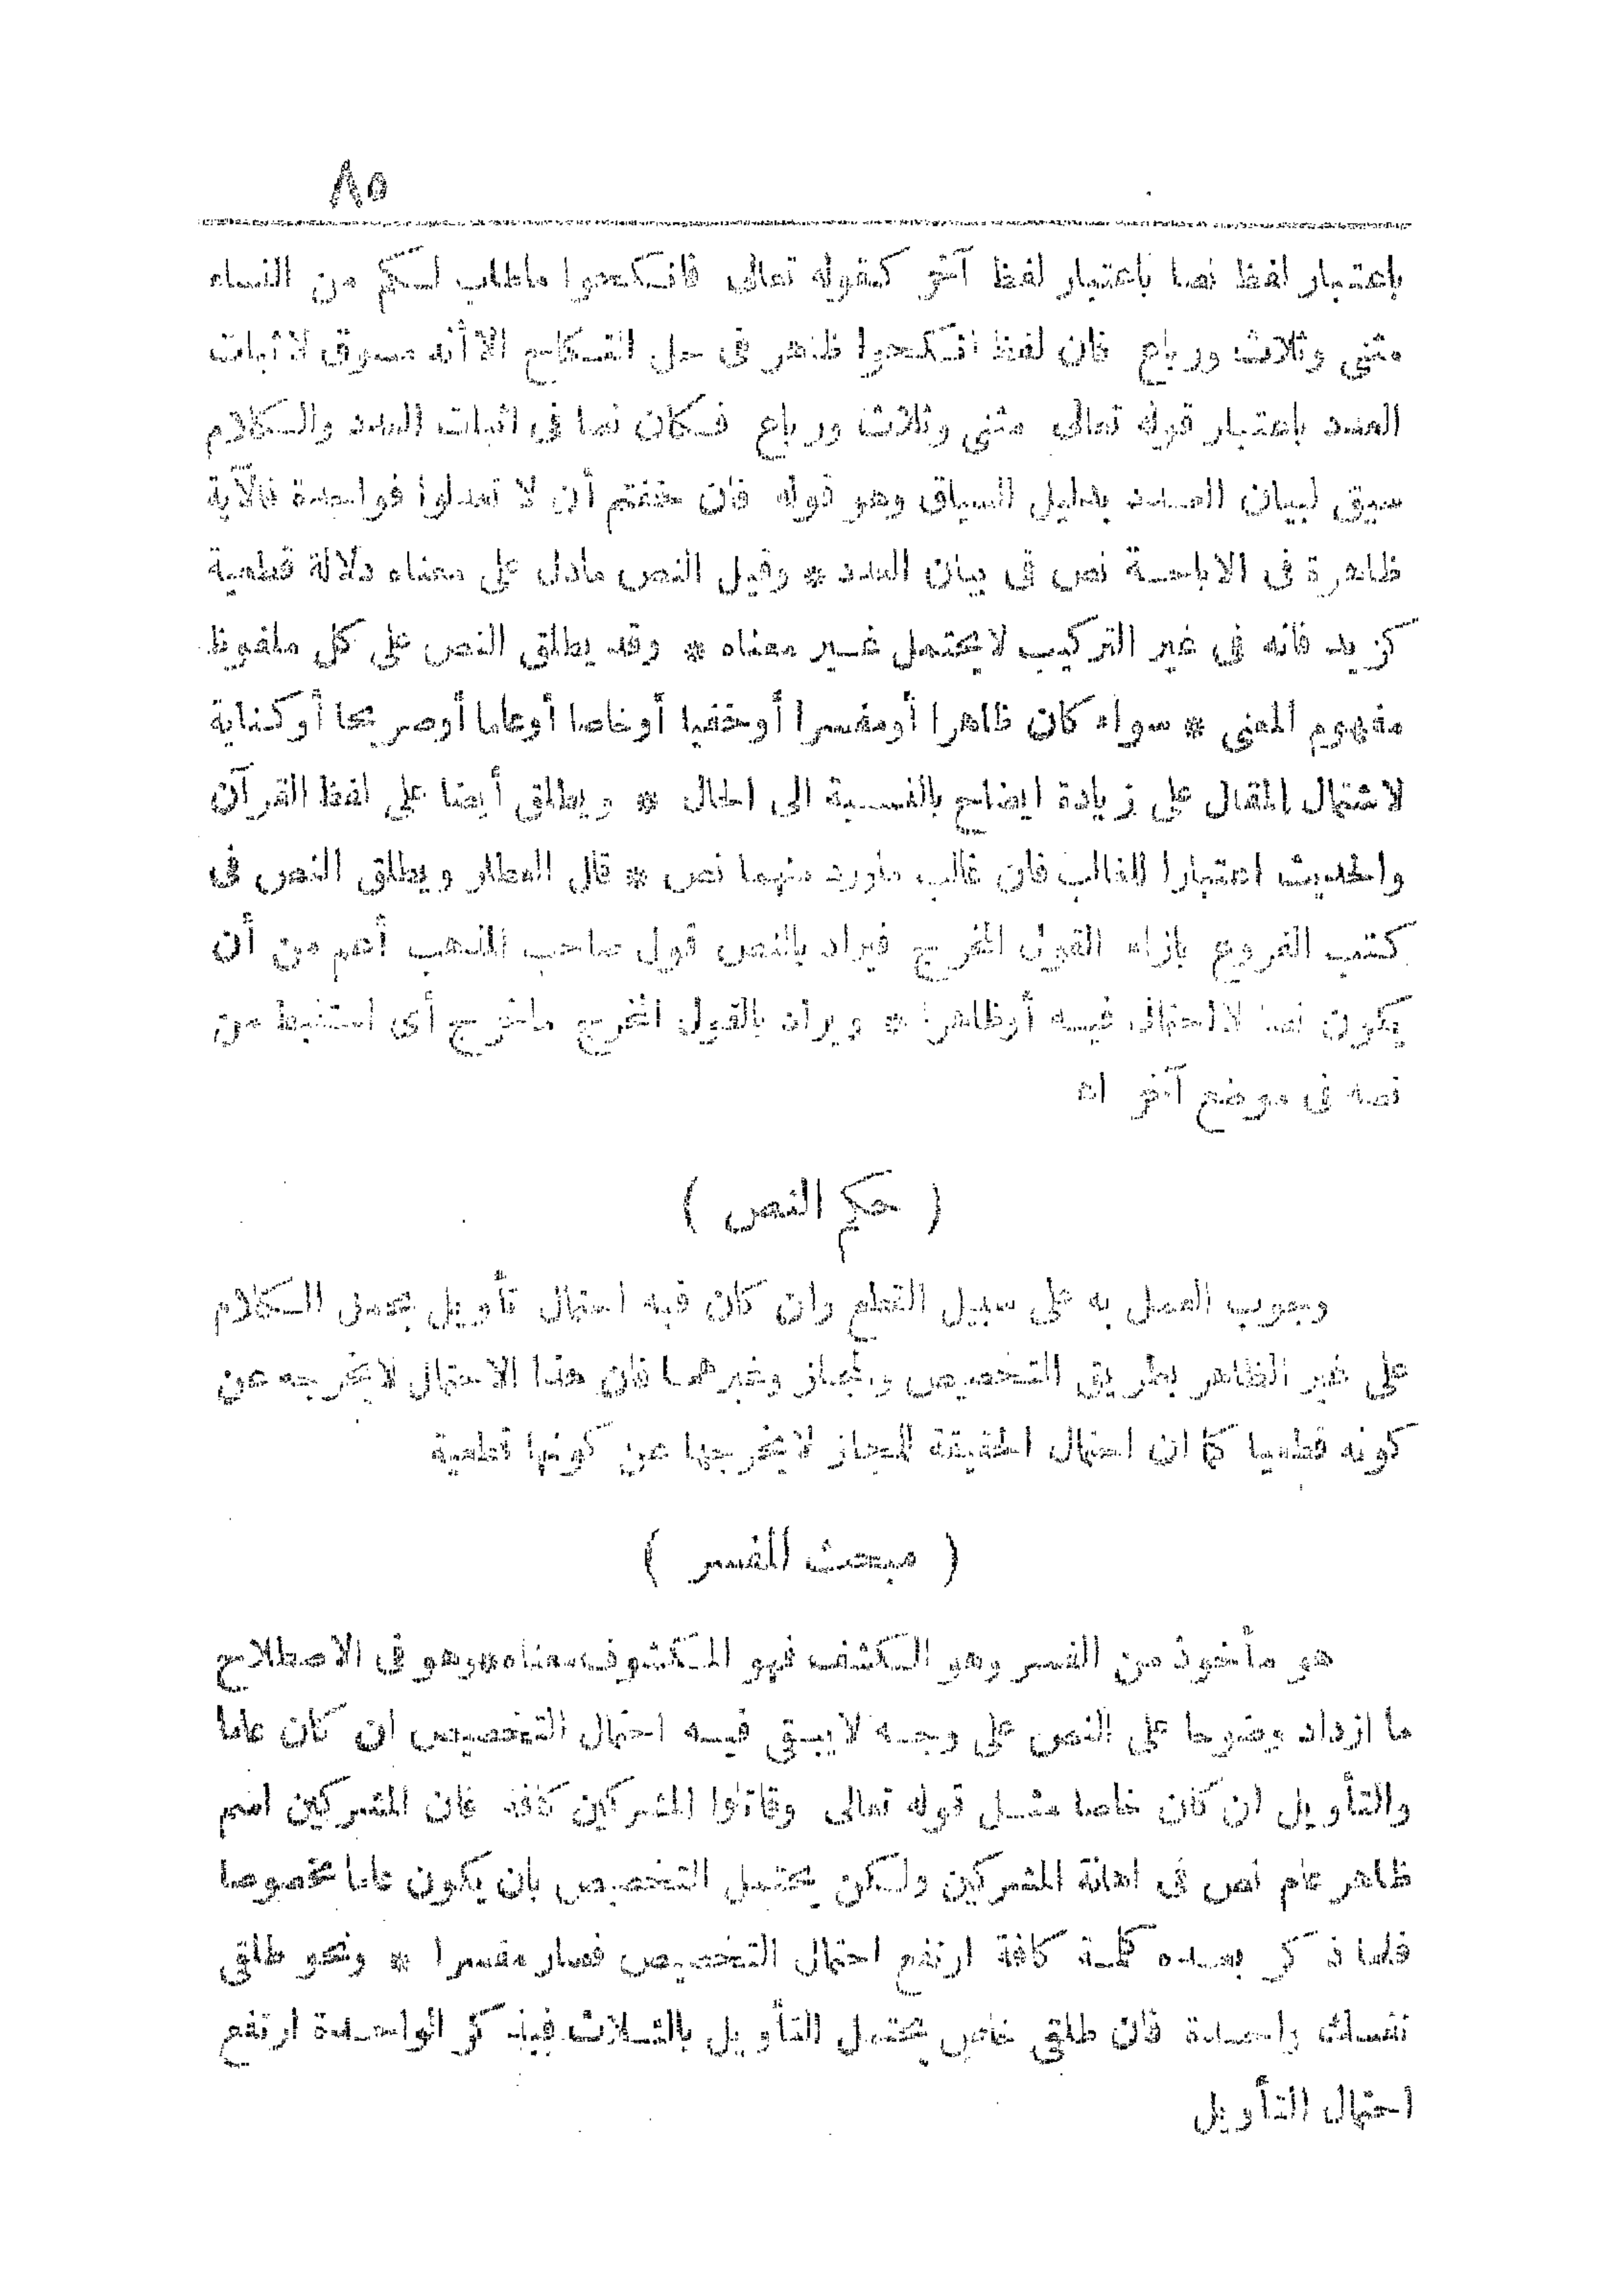 ٨٥
باعتبار لفظ نصا باعتبار لفظ آخر كقوله تعالى فانكحوا ماطاب لكم من النساء
مثنى وثلاث ورباع فان لفظ انكحوا ظاهر فى حل النكاح الا أنه مسوق لاثبات
العدد باعتبار قوله تعالى مثنى وثلاث ورباع فكان نصا فى اثبات العدد والكلام
سيق لبيان العدد بدليل السياق وهو قوله فان خفتم أن لا تعدلوا فواحدة فالآية
ظاهرة فى الاباحة نص فى بيان العدد * وقيل النص مادل على معناه دلالة قطعية
كزيد فانه فى غير التركيب لايحتمل غير معناه * وقد يطلق النص على كل ملفوظ
مفهوم المعنى * سواء كان ظاهرا أومفسرا أوخفيا أوخاصا أوعاما أوصريحا أوكناية
لاشتمال المقال على زيادة ايضاح بالنسبة الى الحال * ويطلق أيضا على لفظ القرآن
والحديث اعتبارا للغالب فان غالب ماورد منهما نص * قال العطار ويطلق النص فى
كتب الفروع بازاء القول المخرج فيراد بالنص قول صاحب المذهب أعم من أن
يكون نصا لااحتمال فيه أوظاهرا * ويراد بالقول المخرج ماخرج أى استنبط من
نصه فى موضع آخر اه
( حكم النص )
وجوب العمل به على سبيل القطع وان كان فيه احتمال تأويل يحمل الكلام
على غير الظاهر بطريق التخصيص والمجاز وغيرهما فان هذا الاحتمال لايخرجه عن
كونه قطعيا كما ان احتمال الحقيقة للمجاز لايخرجها عن كونها قطعية
( مبحث المفسر )
هو مأخوذ من الفسر وهو الكشف فهو المكشوف معناه * وهو فى الاصطلاح
ما ازداد وضوحا على النص على وجه لايبقى فيه احتمال التخصيص ان كان عاما
والتأويل ان كان خاصا مثل قوله تعالى وقاتلوا المشركين كافة فان المشركين اسم
ظاهر عام نص فى اهانة المشركين ولكن يحتمل التخصيص بان يكون عاما مخصوصا
فلما ذكر بعده كلمة كافة ارتفع احتمال التخصيص فصار مفسرا * ونحو طلقى
نفسك واحدة فان طلقى خاص يحتمل التأويل بالثلاث فبذكر الواحدة ارتفع
احتمال التأويل